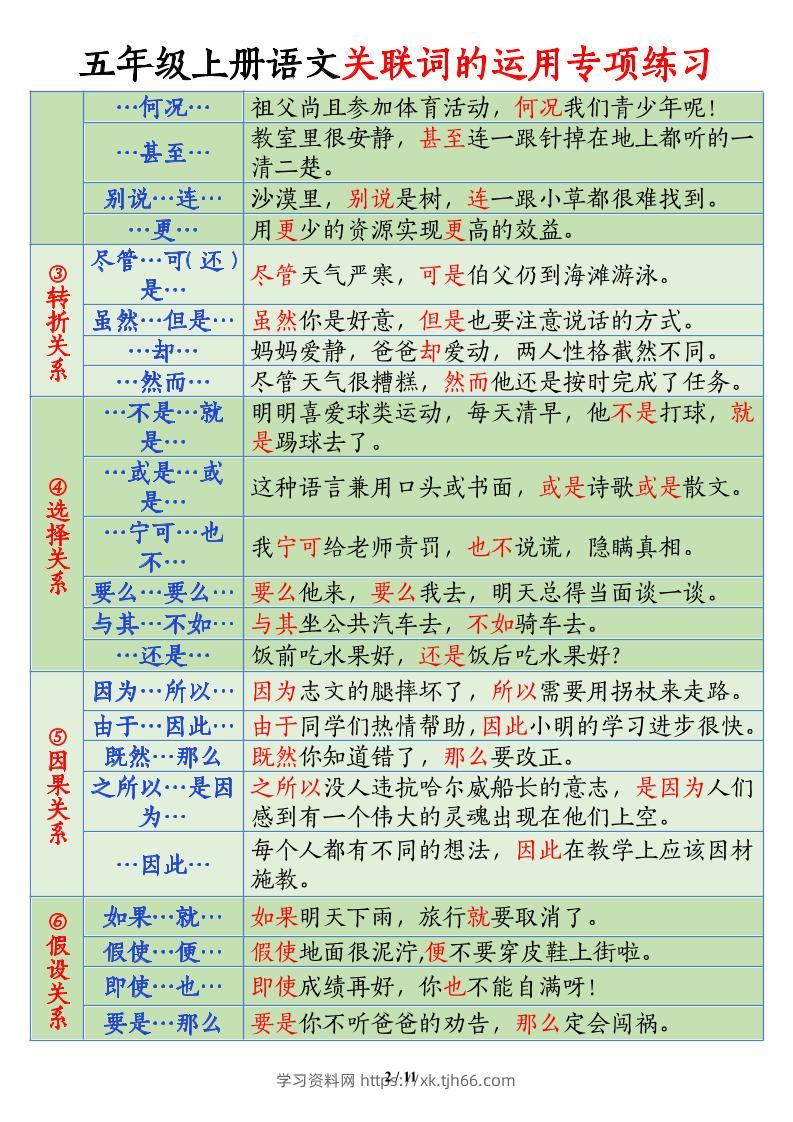 五年级上册语文关联词的运用专项练习
…何况…
祖父尚且参加体育活动，何况我们青少年呢！
…甚至…
教室里很安静，甚至连一跟针掉在地上都听的一
清二楚。
别说…连…
沙漠里，别说是树，连一跟小草都很难找到。
…更…
用更少的资源实现更高的效益。
③
转
折
关
系
尽管…可（还）
是…
尽管天气严寒，可是伯父仍到海滩游泳。
虽然…但是…
虽然你是好意，但是也要注意说话的方式。
…却…
妈妈爱静，爸爸却爱动，两人性格截然不同。
…然而…
尽管天气很糟糕，然而他还是按时完成了任务。
④
选
择
关
系
…不是…就
是…
明明喜爱球类运动，每天清早，他不是打球，就
是踢球去了。
…或是…或
是…
这种语言兼用口头或书面，或是诗歌或是散文。
…宁可…也
不…
我宁可给老师责罚，也不说谎，隐瞒真相。
要么…要么…
要么他来，要么我去，明天总得当面谈一谈。
与其…不如…
与其坐公共汽车去，不如骑车去。
…还是…
饭前吃水果好，还是饭后吃水果好?
⑤
因
果
关
系
因为…所以…
因为志文的腿摔坏了，所以需要用拐杖来走路。
由于…因此…
由于同学们热情帮助,因此小明的学习进步很快。
既然…那么
既然你知道错了，那么要改正。
之所以…是因
为…
之所以没人违抗哈尔威船长的意志，是因为人们
感到有一个伟大的灵魂出现在他们上空。
…因此…
每个人都有不同的想法，因此在教学上应该因材
施教。
⑥
假
设
关
系
如果…就…
如果明天下雨，旅行就要取消了。
假使…便…
假使地面很泥泞,便不要穿皮鞋上街啦。
即使…也…
即使成绩再好，你也不能自满呀！
要是…那么
要是你不听爸爸的劝告，那么定会闯祸。
2 / 11
学习资料网 https://xk.tjh66.com